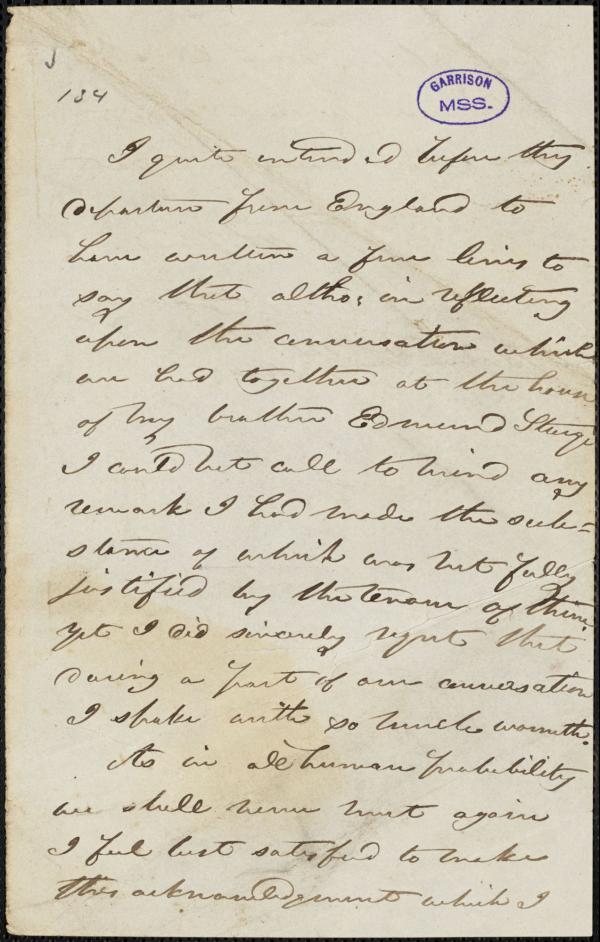 134
GARRISON
MSS.
I quite intended before thy
departure from England to
have written a few lines to
say that altho: in reflecting
upon the conversation which
we had together at the house
of my brother Edmund Sturge
I could not call to mind any
remark I had made the sub=
stance of which was not fully
justified by the tenour of thine
yet I did sincerely regret that
during a part of our conversation
I spoke with so much warmth.
As in all human probability
we shall never meet again
I feel best satisfied to make
this acknowledgment which I